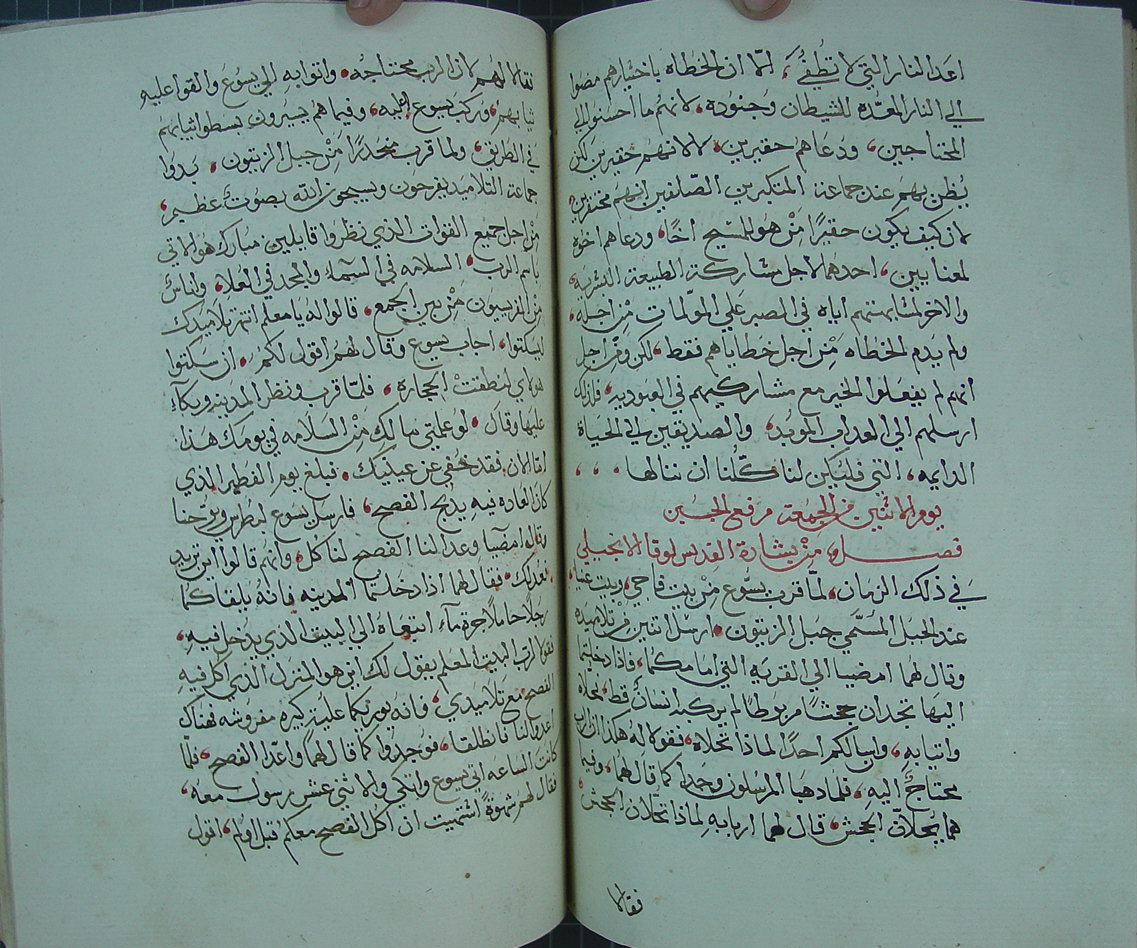 اعد النار التي لا تطفئ، لمّا ان الخطاه باختيارهم مضوا
الى النار المعدّه للشيطان وجنوده، لانهم ما احسنوا الى
المحتاجين، ودعاهم حقيرين، لا لانهم حقيرين لكن
يُظن بهم عند جماعة المتكبرين الصّلفين انهم محتقرين
لان كيف يكون حقيرًا مَنْ هو للمسيح اخًا، ودعاهم اخوة
لمعنايين، احدهما لاجل مشاركة الطبيعة البشرية،
والاخر لمشابهتهم اياه في الصبر علي المولمات مْن اجله،
ولم يدم الخطاه مْن اجل خطاياهم فقط، لكن ومْن اجل
انهم لم يفعلوا الخير مع مشاركيهم في العبوديه، فلذلك
ارسلهم الى العداب الموبد، والصديقين الى الحياة
الدايمه، التي فليكن لنا كلّنا ان ننالها
يوم الاثنين من الجمعة مرفع الجبن
فصل مْن بشارة القديس لوقا الانجيلي
في ذلك الزمان، لمّا قرب يسوع مْن بيت فاجي، وبيت عنيا،
عند الجبل المسمّي جبل الزيتون، ارسل اثنين مْن تلاميذه
وقال لهما امضيا الي القريه التي امامكما، فاذا دخلتما
اليها تجدان جحشًا مربوطا لم يركبه انسان قط، فحلاه
واتيا به، وان سالكم احدًا لماذا تحلاه، فقولا له هكذا ان الرب
يحتاج اليه، فلما ذهبا المرسلون وجدا كما قال لهما، وفيما
هما يحلان الجحش، قال لهما اربابه لماذا تحلان الجحش،
فقالا
فقالا لهم لان الرب محتاجه، واتوا به الى يسوع والقوا عليه
ثيابهم، وركب يسوع عليه، وفيما هم يسيرون بسطوا ثيابهم
في الطريق، ولما قرب منحدرًا مْن جبل الزيتون، بدوا
جماعة التلاميد يفرحون ويسبحون الله بصوت عظيم،
مْن اجل جميع القوات الذي نظروا قايلين مبارك هو الاتي
باسم الرب، السلامه في السماء والمجد في العلا، واناسً
مْن الفريسيون مْن بين الجمع، قالوا له يا معلم انتهر تلاميدك
ليسكتوا، اجاب يسوع وقال لهم اقول لكم، ان سكتوا
هولاي لنطقتْ الحجارة، فلمّا قرب ونظر المدينه وبكآء
عليها وقال، لو علمتي ما لك مْن السلامه في يومك هذا
فقد خُفي عن عينيك، فبلغ يوم الفطير الذي
كان العاده فيه يدبح الفصح، فارسل يسوع بطرس ويوحنا
وقال امضيا وعدا لنا الفصح لناكل، وانهم قالوا اين تريد
نعد لك، فقال لهما اذا دخلتما المدينه فانه يلقاكما
رجلًا حاملًا جرة مآء اتبعاه الي البيت الذي يدخل فيه،
فقولا لرب البيت المعلم يقول لك اين هو المنزل الذي اكل فيه
الفصح مع تلاميدي، فانه يوريكما علية كبيره مفروشه هناك
اعدوا لنا فانطلقا، فوجدوا كما قال لهما واعدّا الفصح، فلمّا
كانت الساعه اتي يسوع واتكي والاثني عشر رسول معه،
فقال لهم شهوةً اشتهيت ان اكل الفصح معكم قبل اولم، اقول